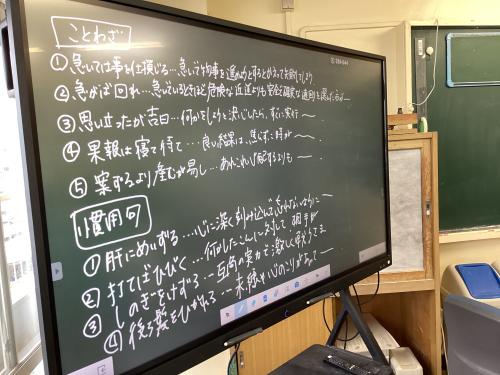 ことわざ
① 急いては事を仕損じる…急いで物事を進めようとするとかえって失敗してしまう
② 急がば回れ…急いでいるときほど危険な近道よりも安全で確実な遠回りを選んだ方が〜
③ 思い立ったが吉日…何かをしようと決心したら、すぐに実行〜
④ 果報は寝て待て…良い結果は、焦らず時が〜
⑤ 案ずるより産むが易し…あれこれ心配するよりも〜
慣用句
① 肝にめいずる…心に深く刻み込んで忘れないように〜
② 打てばひびく…何かしたことに対して
③ しのぎをけずる…互角の実力で激しく戦う
④ 後ろ髪をひかれる…未練や心のこりがあって〜